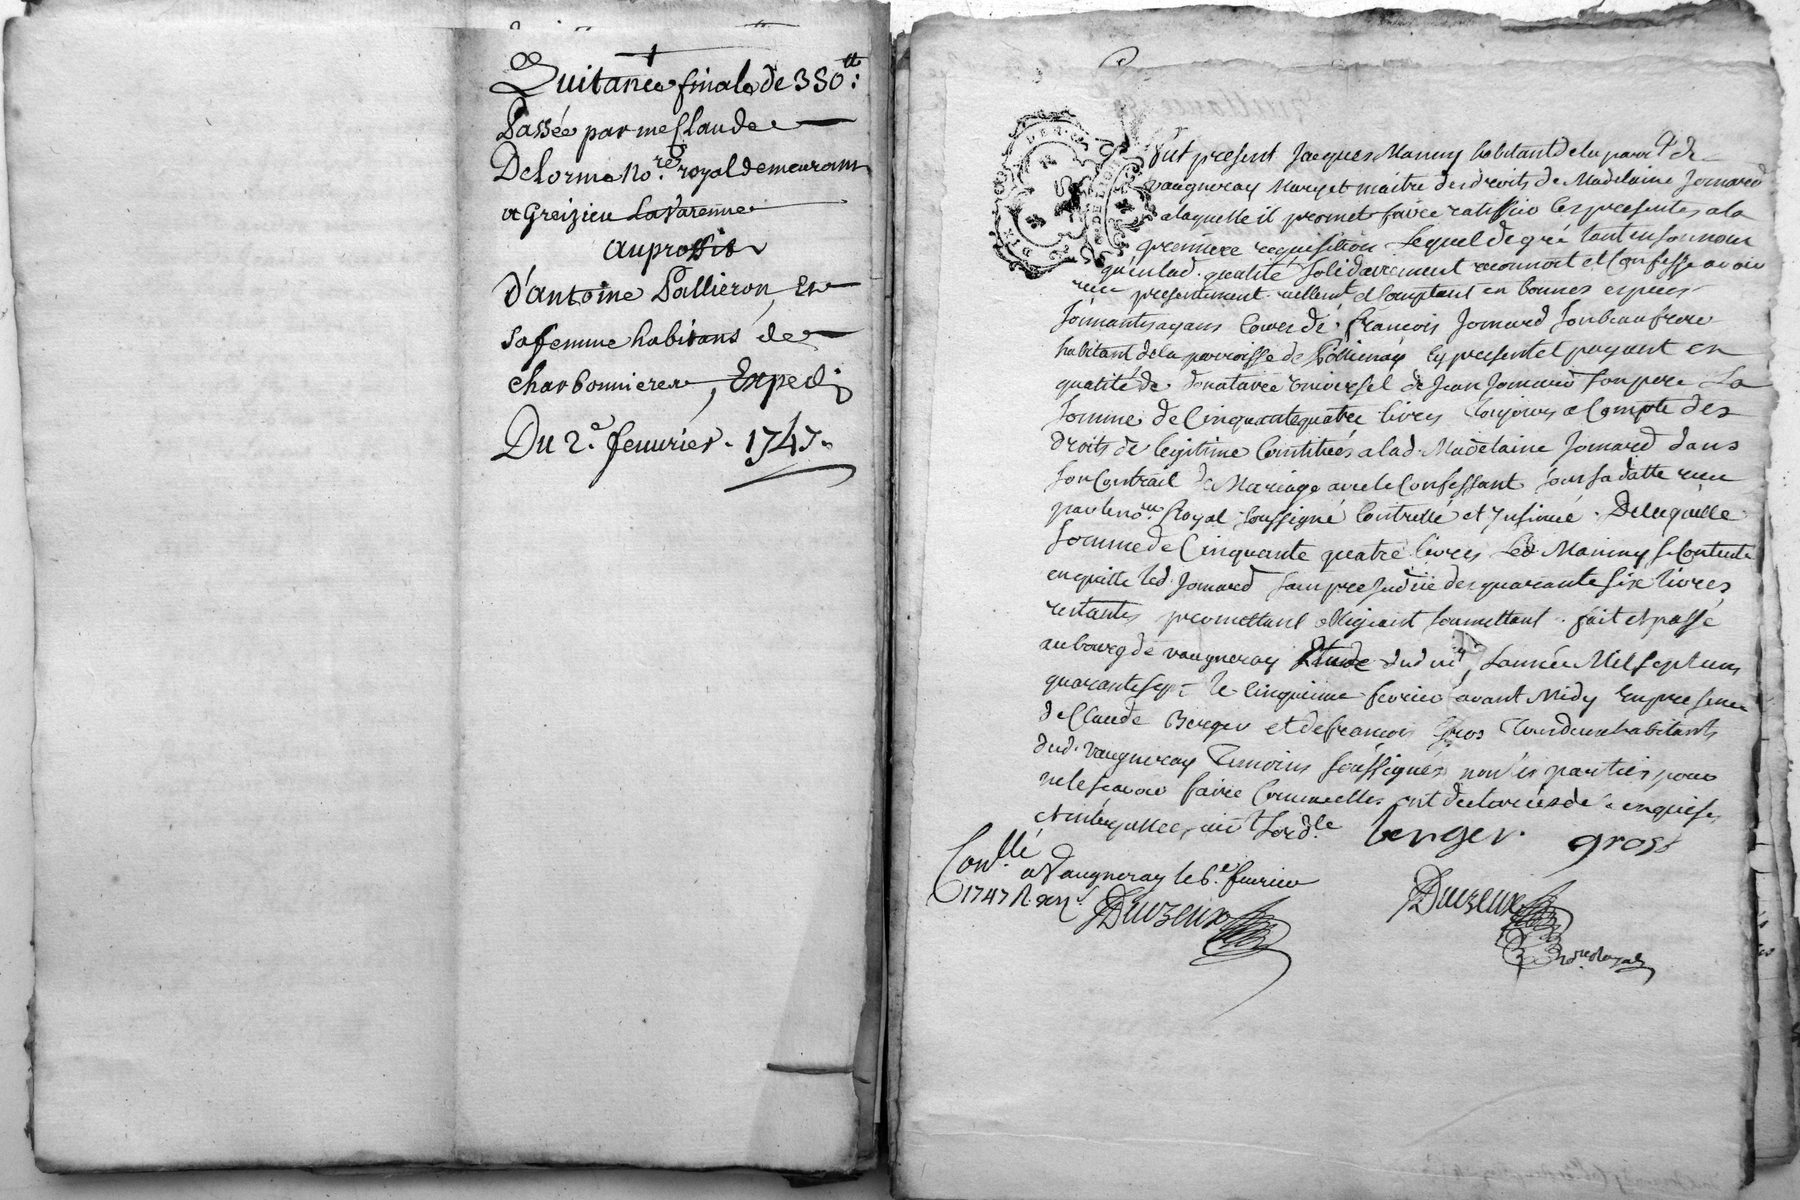 Quitance finale de 350 tt:
Passée par me Claude
Delorme No.re royal demeurant
a Greizieu Lavarenne
au proffit
d'antoine Pallieron, Et
sa femme habitans de
charbonnieres, Exped.
Du 2.e feuvrier. 1747.
Fut present Jacques Mamy habitant de la parr.e de
vaugneray Mary et maitre des droits de Madelaine Jomard
a laquelle il promet faire ratiffier les presentes a la
premiere requisition Lequel de gré tant en son nom
qu'en lad. qualité solidairement reconnoit et Confesse avoir
receu presentement reellemt et Comptant en bonnes especes
sonnantes ayans Cours de françois Jomard son beaufrere
habitant de la parroisse de Pollienay Cy present et payant en
qualité de donataire universel de Jean Jomard son pere La
somme de Cinquante quatre livres toujours a Compte des
droits de legitime Constitués a lad. Madelaine Jomard dans
son Contrait de Mariage avec le Confessant sous sa datte receu
par le no.re Royal soussigné Controllé et Insinué. De laquelle
somme de Cinquante quatre livres Led. Mamy se Contente
en quitte led. Jomard sans prejudice des quarante six livres
restantes promettant obligeant soumettant. fait et passé
au bourg de vaugneray Etude dud no.re L'année Mil sept cens
quarante sept le Cinquieme fevrier avant Midy En presence
de Claude Berger et de francois Gros tous deux habitants
dud. vaugneray temoins soussignés non les parties pour
ne le scavoir faire Comme elles ont declarées de ce enquises
et interpellées suivt l'ord.ce berger. gros
Con.llé
a Vaugneray le 6.e feuvrier
1747 R. Duzeux Duzeux
no.re Royal